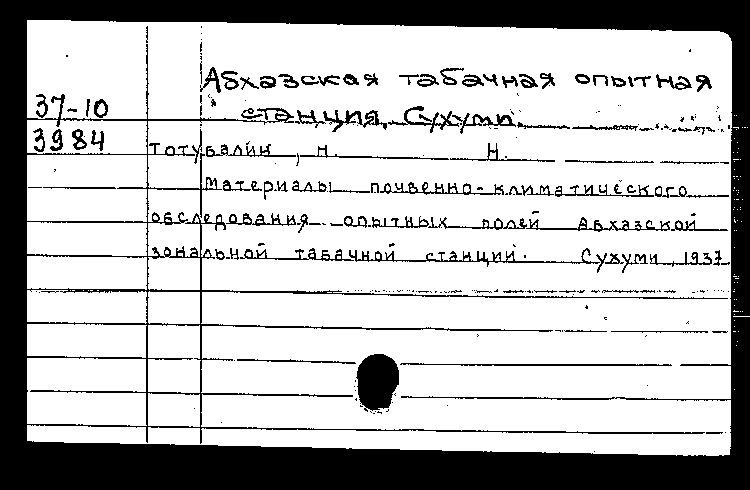 Абхазская табачная опытная
37-10
станция, Сухуми.
3984
Тотубалин, Н. Н.
Материалы почвенно-климатического
обследования опытных полей Абхазской
зональной табачной станции. Сухуми, 1937